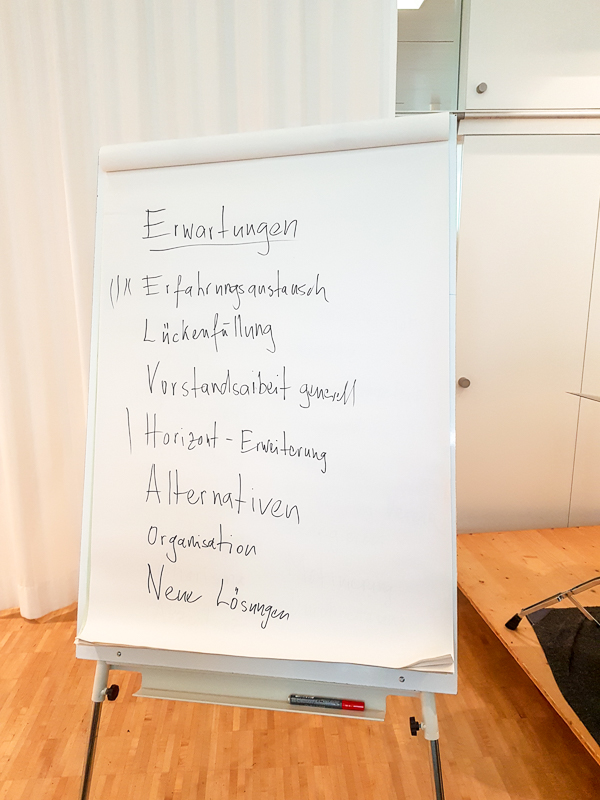 Erwartungen
Erfahrungsaustausch
Lückenfüllung
Vorstandsarbeit generell
Horizont - Erweiterung
Alternativen
Organisation
Neue Lösungen